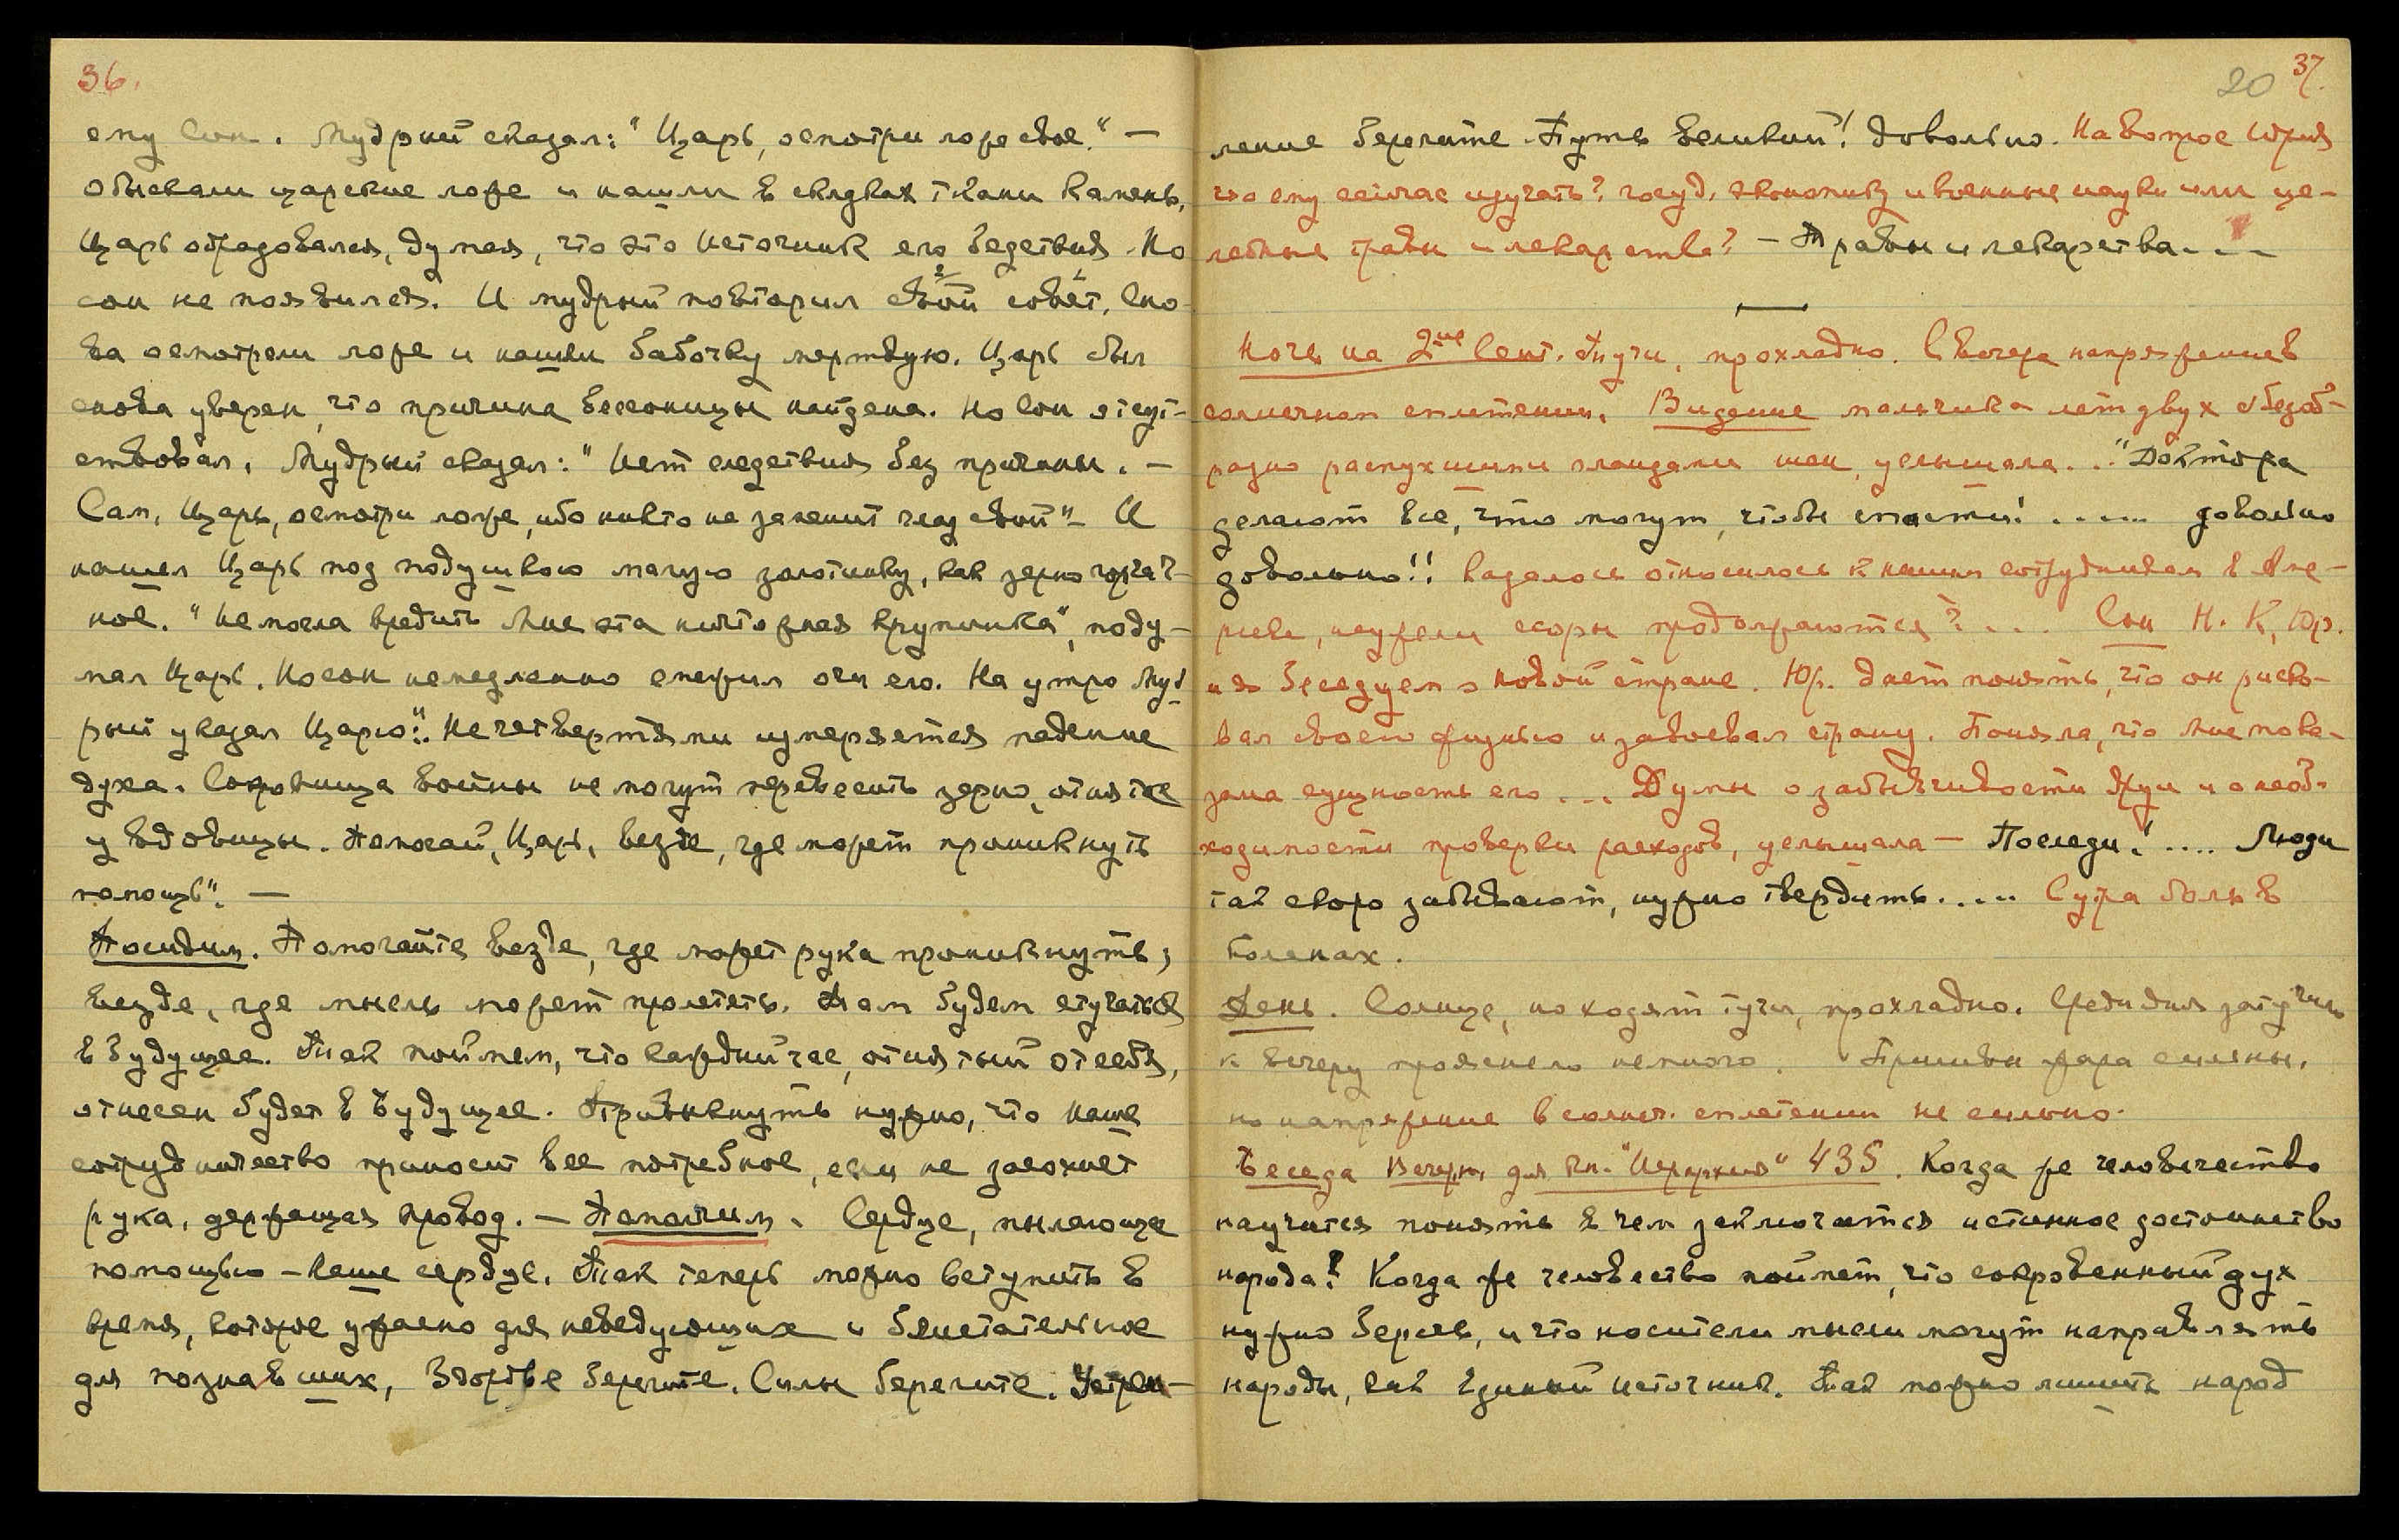 36.
ему Сон. Мудрый сказал: "Царь, осмотри ложе свое." —
Обыскали царское ложе и нашли в складках ткани камень.
Царь обрадовался, думая, что это источник его бедствия. Но
сон не появился. И мудрый повторил свой совет. Сно-
ва осмотрели ложе и нашли бабочку мертвую. Царь был
снова уверен, что причина бессоницы найдена. Но Сон отсут-
ствовал. Мудрый сказал: "Нет следствия без причины. —
Сам, Царь, осмотри ложе, ибо никто не заменит глаз свой" — И
нашел Царь под подушкою малую золотинку, как зерно горчич-
ное. "Не могла вредить Мне эта ничтожная крупинка", поду-
мал Царь. Но сон немедленно смежил очи его. На утро Муд-
рый указал Царю: "Не четвертями измеряется падение
духа. Сокровища войны не могут перевесить зерно, отнятое
у вдовицы. Помогай, Царь, везде, где может проникнуть
помощь". —
Посидим. Помогайте везде, где может рука проникнуть;
везде, где мысль может пролететь. Там будем стучаться
в Будущее. Так поймем, что каждый час, отнятый от себя,
отнесен будет в Будущее. Привыкнуть нужно, что наше
сотрудничество приносит все потребное, если не засохнет
рука, держащая провод. — Помолчим. Сердце, пылающее
помощью — наше сердце. Так теперь можно вступить в
время, которое ужасно для неведующих и блистательное
для познавших, Здоровье берегите. Силы берегите. Устрем-
20 37.
ление берегите. Путь великий! Довольно. На вопрос Юрия
что ему сейчас изучать? госуд. экономику и военные науки или це-
лебные травы и лекарства? — Травы и лекарства...
Ночь на 2ое Сент. Тучи, прохладно. С вечера напряжение в
солнечном сплетении. Видение мальчика лет двух с безоб-
разно распухшими гландами шеи, услышала... "Доктора
делают все, что могут, чтобы спасти! ..... довольно
довольно!! Казалось относилось к нашим сотрудникам в Аме-
рике, неужели ссоры продолжаются? .... Сон Н. К, Юр.
и я беседуем о новой стране. Юр. дает понять, что он риско-
вал своею жизнью и завоевал страну. Поняла, что Мне пока-
зана сущность его ... Думы о забывчивости Яруи и о необ-
ходимости проверки расходов, услышала — Последи! .... Люди
так скоро забывают, нужно твердить..... С утра боль в
коленах.
День. Солнце, но ходят тучи, прохладно. Среди дня затучило
к вечеру прояснело немного. Приливы жара сильны,
но напряжение в солнеч. сплетении не сильно.
Беседа Вечерн. для кн. "Иерархия" 435. Когда же человечество
научится понять в чем заключается истинное достоинство
народа? Когда же человечество поймет, что сокровенный дух
нужно беречь, и что носители мысли могут направлять
народы, как Единый источник. Так можно лишить народ